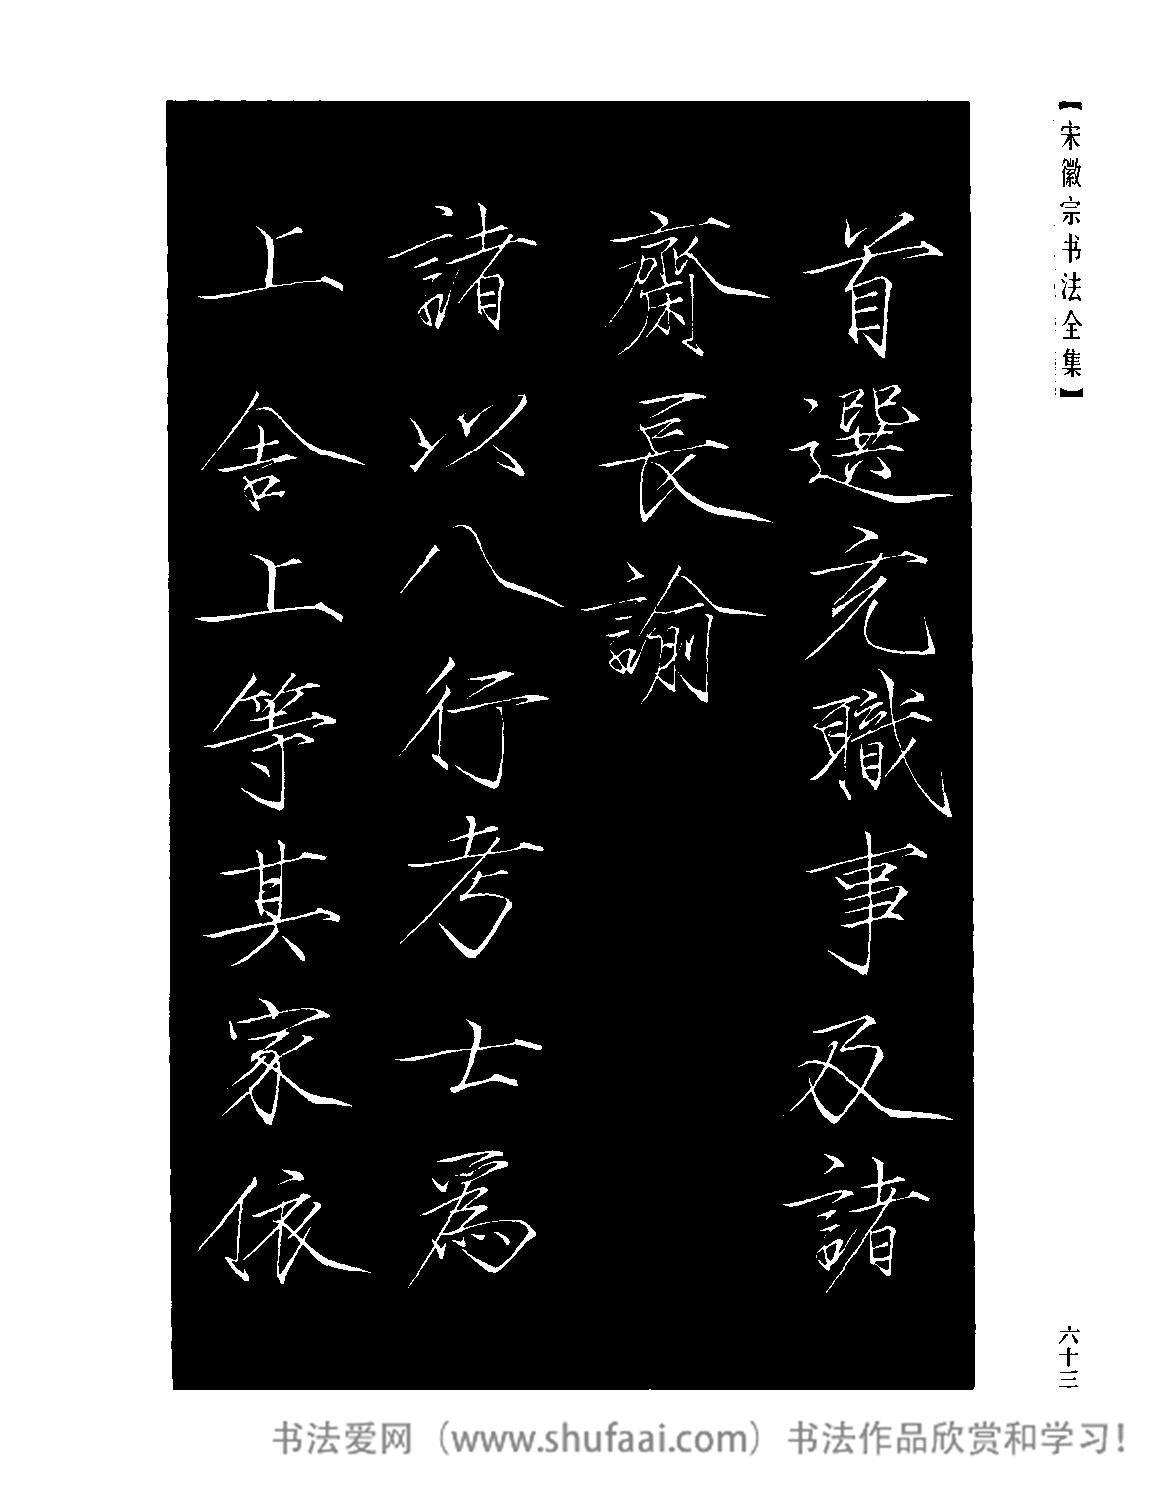 【宋徽宗书法全集】
首選充職事及諸
齋長諭
諸以八行考士爲
上舍上等其家依
六十三
书法爱网（www.shufaai.com）书法作品欣赏和学习！